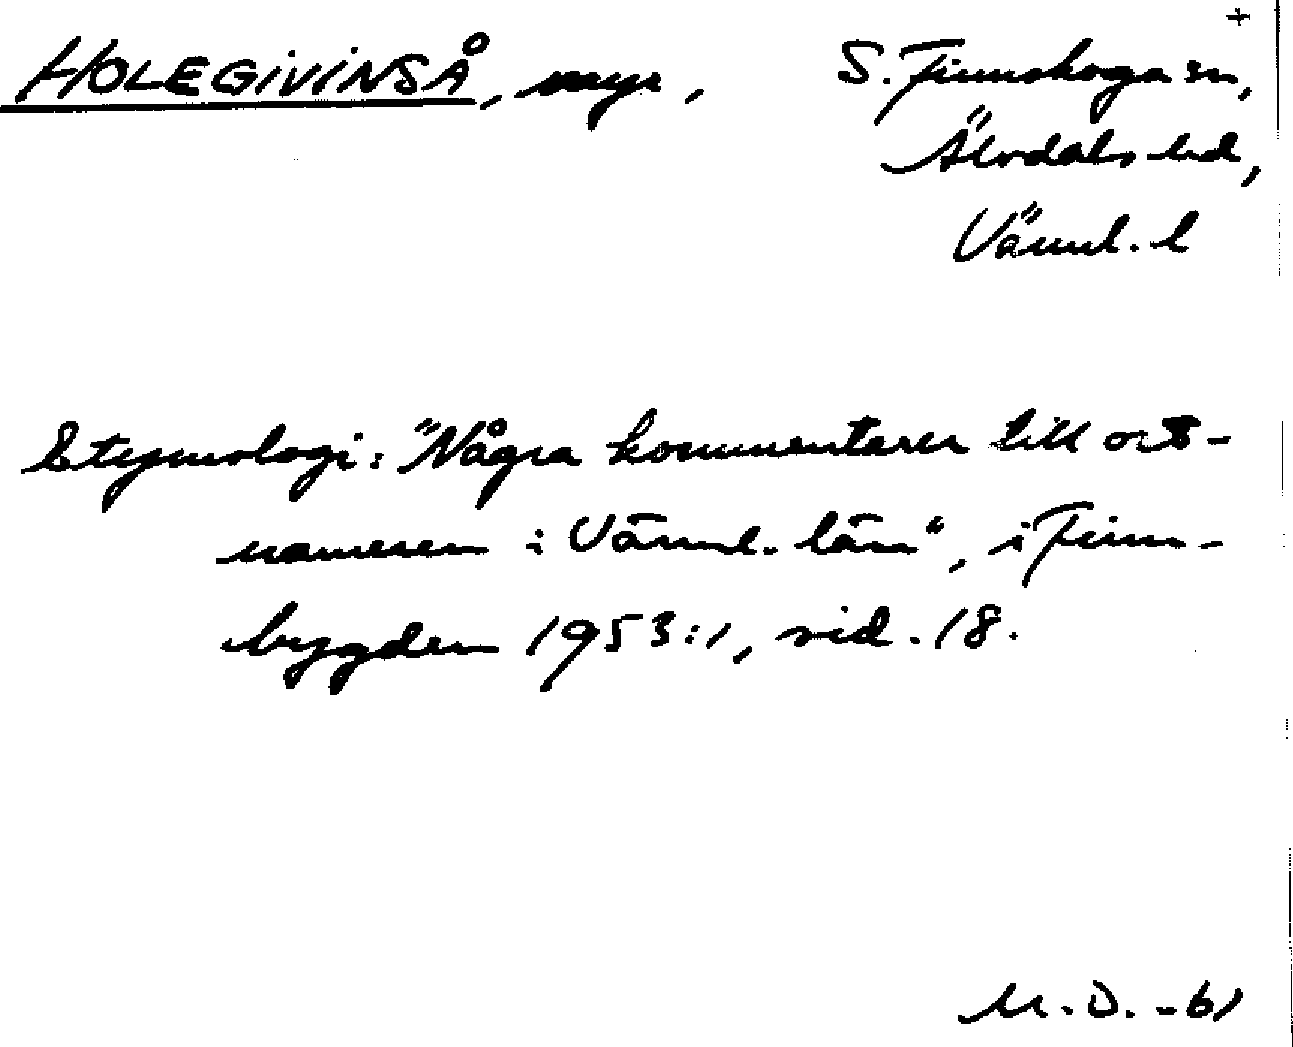 +
HOLEGIVINSÅ, myr, S. Finnskoga sn,
Älvdals hd,
Värml. l
Etymologi: "Några kommentarer till orts-
namnen i Värml. län", i Finn-
bygden 1953:1, sid. 18.
M.D. -61